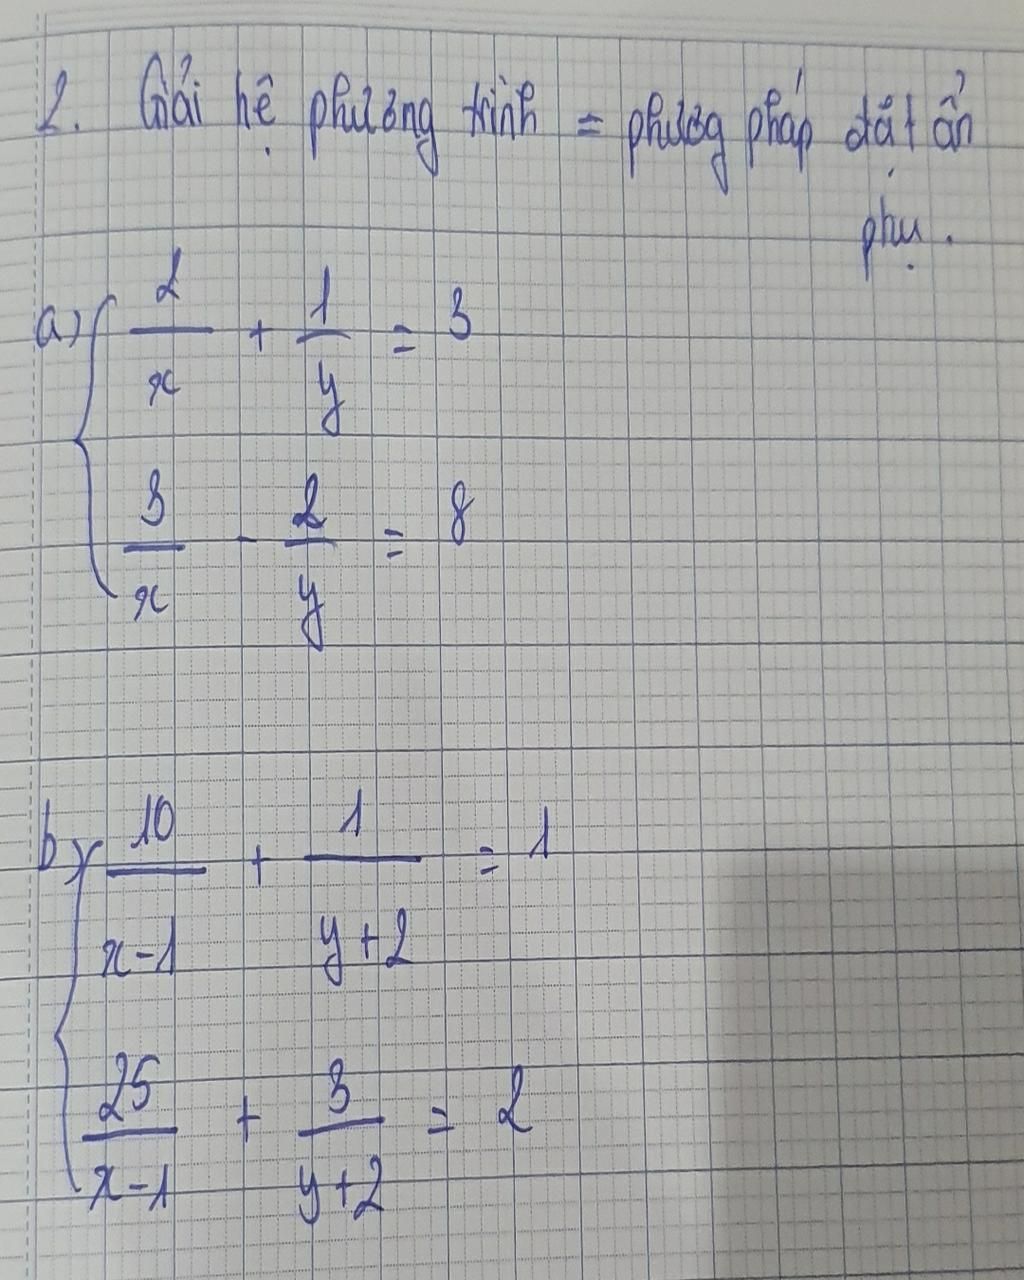 2. Giải hệ phương trình = phương pháp đặt ẩn
phụ.
a) { 2/x + 1/y = 3
3/x - 2/y = 8
b) { 10/x-1 + 1/y+2 = 1
25/x-1 + 3/y+2 = 2